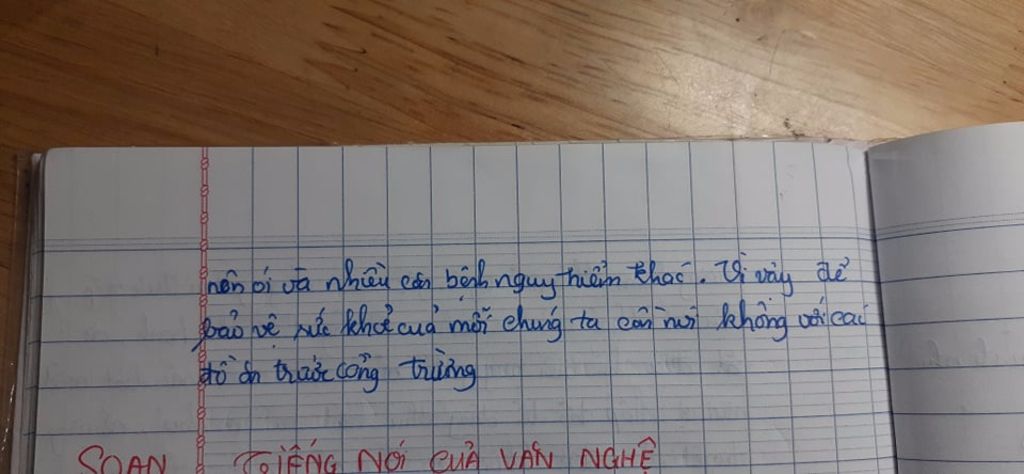 nôn ói và nhiều căn bệnh nguy hiểm khác. Vì vậy để
bảo vệ sức khoẻ cuả mỗi chúng ta cần nói không với các
đồ ăn trước cổng trường
SOẠN TIẾNG NÓI CỦA VĂN NGHỆ